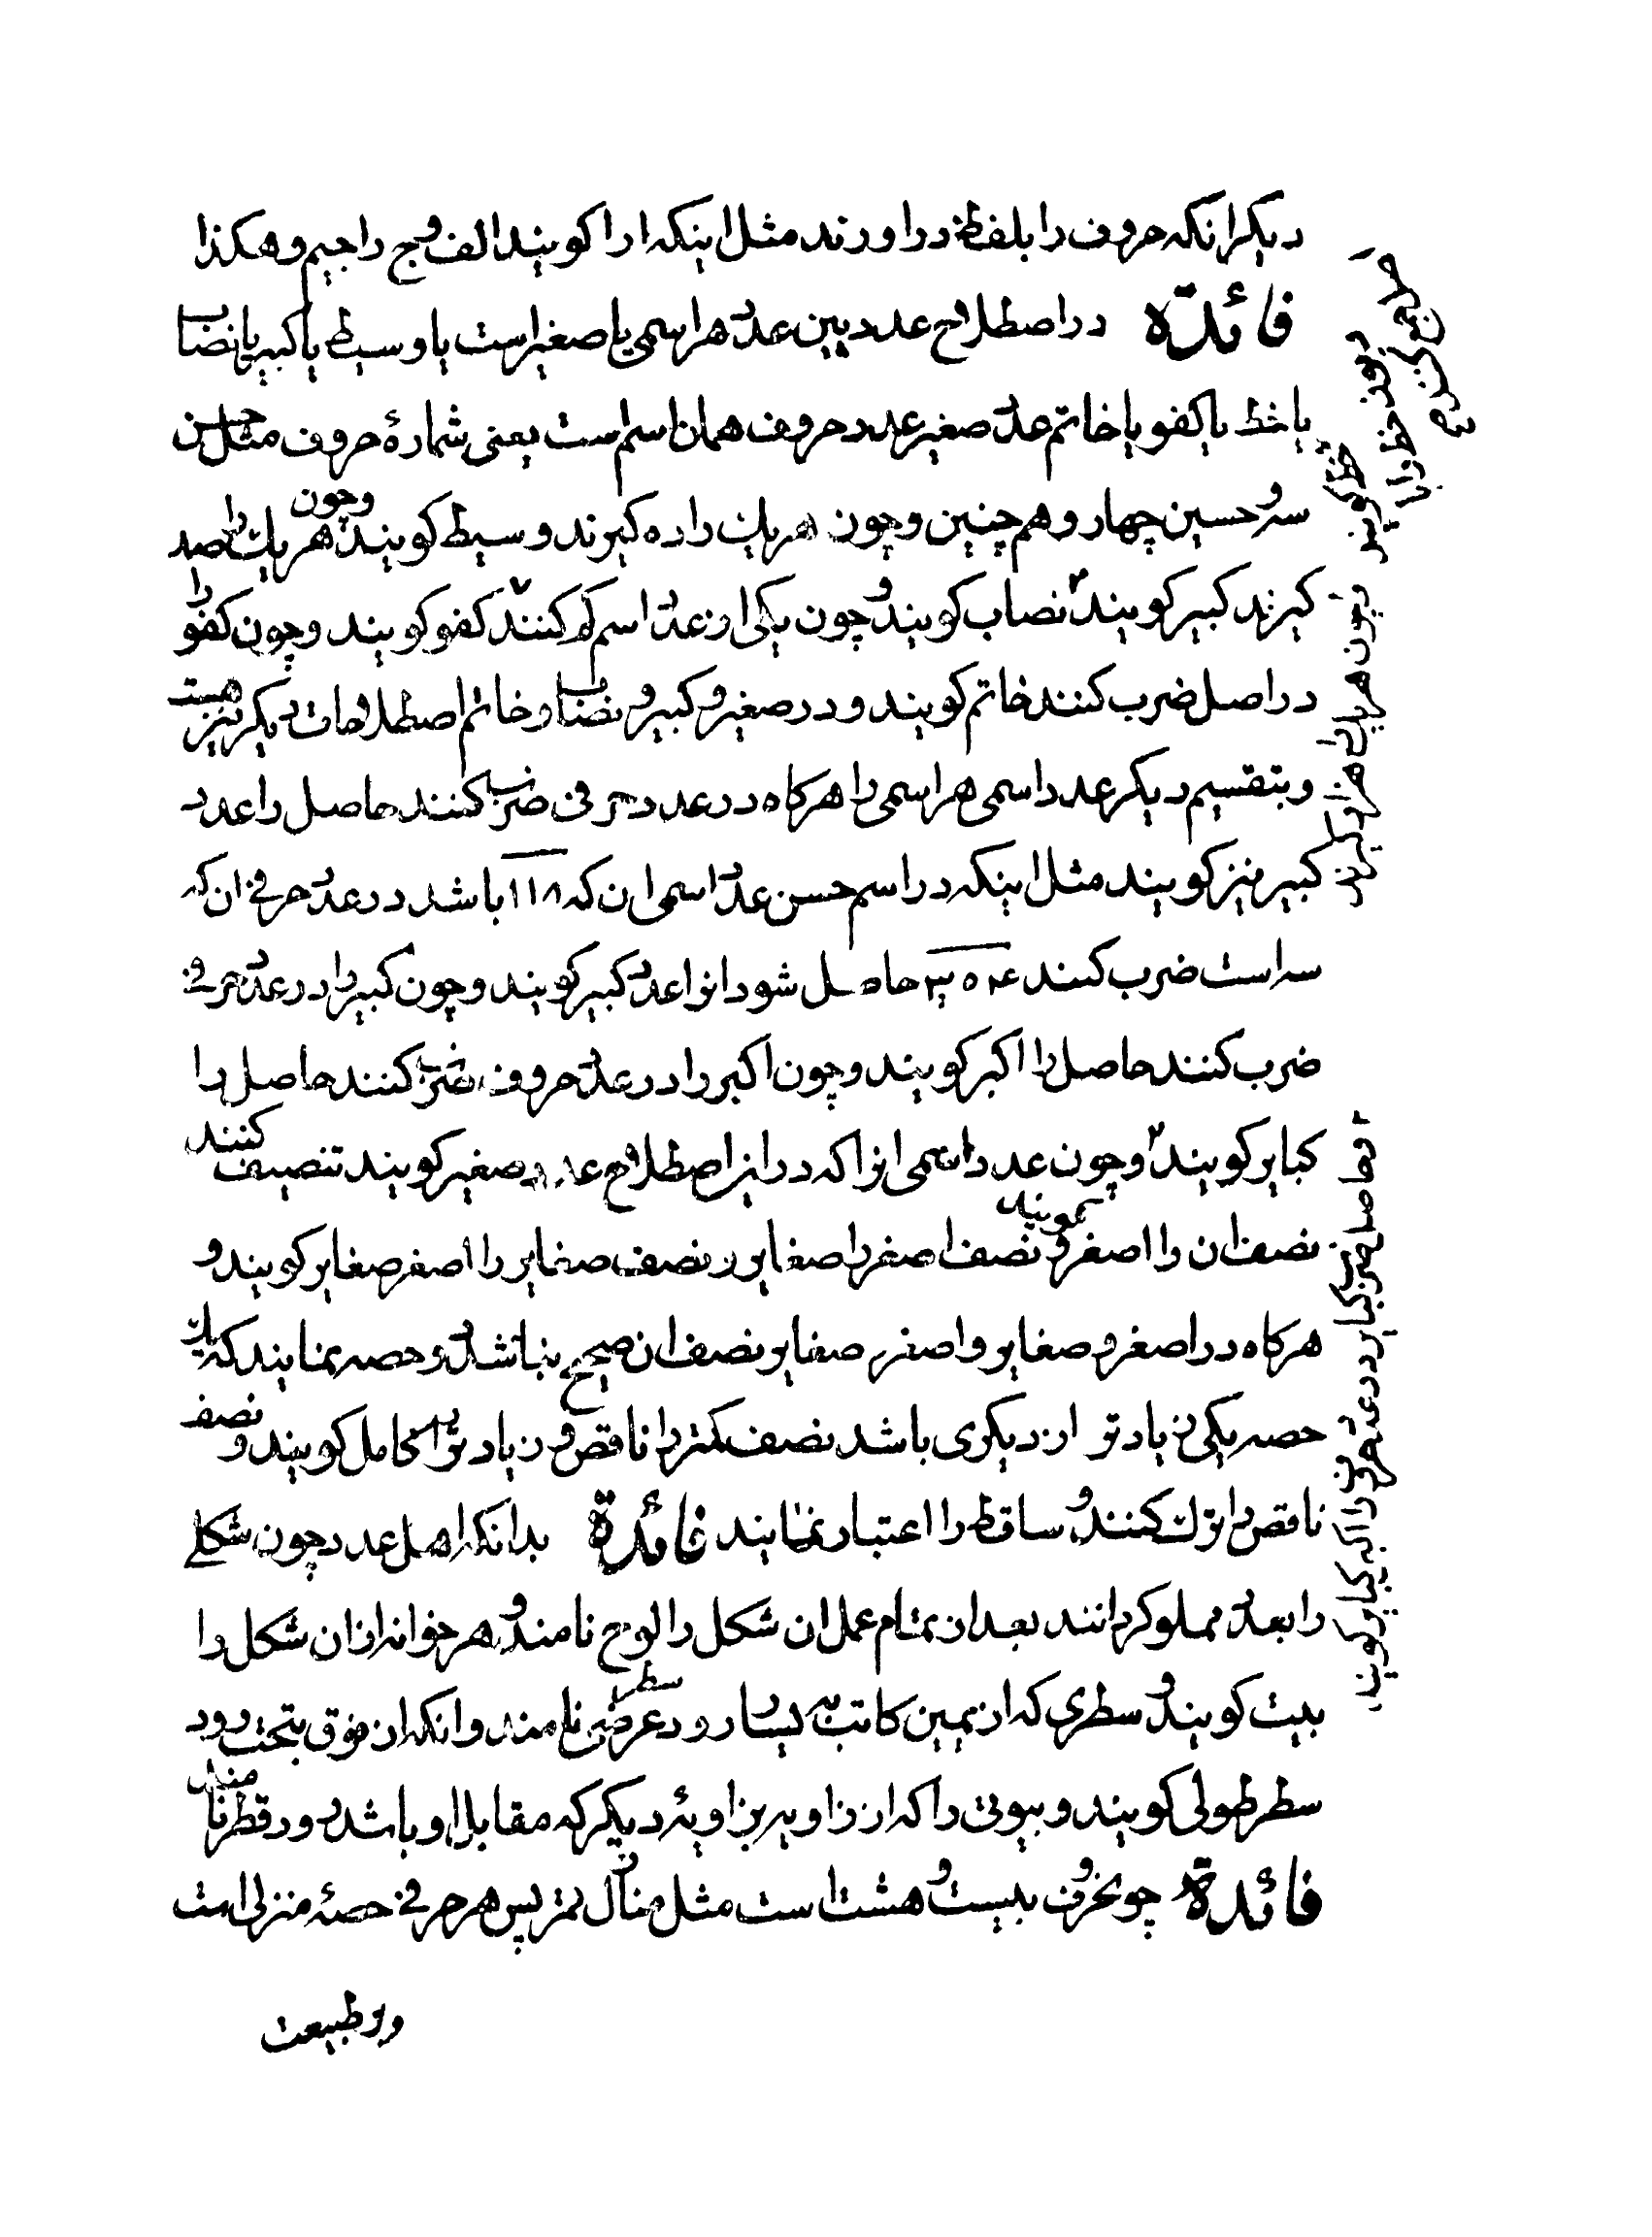 دیکر انکه حروف را بلفظ در اورند مثل اینکه ا را کویند الف و ج را جیم و هکذا
فائدة در اصطلاح عددیین عدد هر اسمی یا صغیر است یا وسیط یا کبیر یا نصاب
یا خط یا کفو یا خاتم عدد صغیر عدد حروف همان اسم است یعنی شمارهٔ حروف مثل حسن
سه و حسین چهار و هم چنین و چون هر یک را ده کیرند وسیط کویند و چون هر یک را صد
کیرند کبیر کویند ۲ نصاب کویند و چون یکی از عدد اسم کم کنند ۷ کفو کویند و چون کفو را
در اصل ضرب کنند خاتم کویند و در صغیر و کبیر و نصاب و خاتم اصطلاحات دیکر نیز هست
و بتقسیم دیکر عدد اسمی هر اسمی را هرکاه در عدد حرفی ضرب کنند حاصل را عدد
کبیر نیز کویند مثل اینکه در اسم حسن عدد اسمی ان که ۱۱۸ باشد در عدد حرفی ان که
سه است ضرب کنند ۳۵۴ حاصل شود انرا عدد کبیر کویند و چون کبیر را در عدد حرفی
ضرب کنند حاصل را اکبر کویند و چون اکبر را در عدد حروف ضرب کنند حاصل را
کبایر کویند ۲ و چون عدد اسمی انرا که در این اصطلاح عدد صغیر کویند تنصیف کنند
نصف ان را اصغر کویند و نصف اصغر را صغایر و نصف صغایر را اصغر صغایر کویند و
هرکاه در اصغر و صغایر و اصغر صغایر نصف ان صحیح نباشد دو حصه نمایند که یک
حصه یکی زیادتر از دیکری باشد نصف کمتر را ناقص و زیادتر را کامل کویند و نصف
ناقص را ترک کنند و ساقط را اعتبار ننمایند فائدة بدانکه اهل عدد چون شکلی
را بعدد مملو کردانند بعد از تمام عمل ان شکل را لوح نامند و هر خوانه از ان شکل را
بیت کویند و سطری که از یمین کاتب به یسار رود سطر عرضی نامند و انکه از فوق بتحت رود
سطر طولی کویند و بیوتی را که از زاویه بزاویهٔ دیکر که مقابل او باشد رود قطر نامند
فائدة چون حروف بیست و هشت است مثل منازل قمر پس هر حرفی حصهٔ منزلی است
و بر طبیعت
خط کویند
چون هر یک را هزار کیرند
و حاصل ضرب کبایر در عدد حرفی را اکبر کبایر کویند